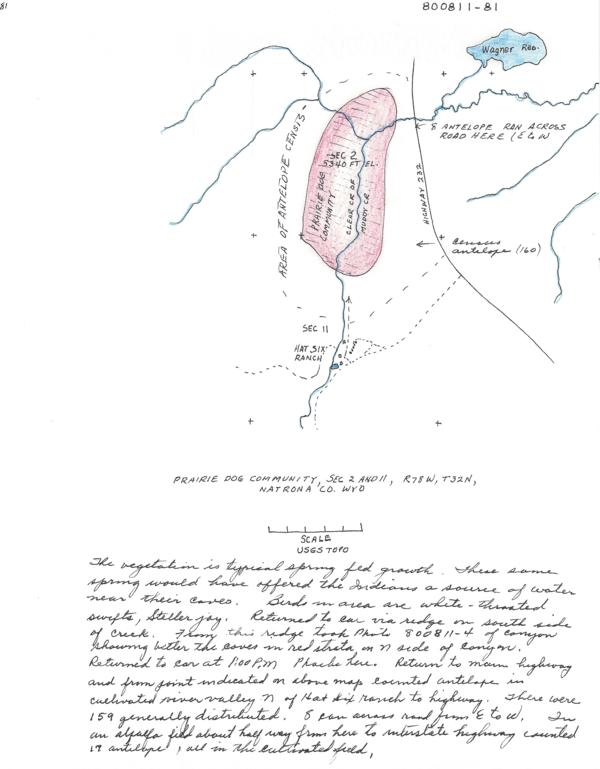 81
800811-81
Wagner Res.
8 ANTELOPE RAN ACROSS
ROAD HERE (E to W
AREA OF ANTELOPE CENSUS
SEC 2
5340 FT EL.
PRAIRIE DOG
COMMUNITY
CLEAR CR OF
MUDDY CR.
HIGHWAY 232
Census
antelope (160)
SEC 11
HAT SIX
RANCH
PRAIRIE DOG COMMUNITY, SEC 2 AND 11, R78W, T32N,
NATRONA CO. WYO
SCALE
USGS TOPO
The vegetation is typical spring fed growth. These same
spring would have offered the Indians a source of water
near their caves. Birds in area are white-throated
swifts, Steller jay. Returned to car via ridge on south side
of Creek. From this ridge took Photo 800811-4 of canyon
showing better the caves in red strata on N side of canyon.
Returned to car at 1:00 P.M Phoebe here. Return to main highway
and from point indicated on above map counted antelope in
cultivated river valley N of Hat Six ranch to highway. There were
159 generally distributed. 8 ran across road from E to W. In
an alfalfa field about half way from here to interstate highway counted
17 antelope, all in the cultivated field,